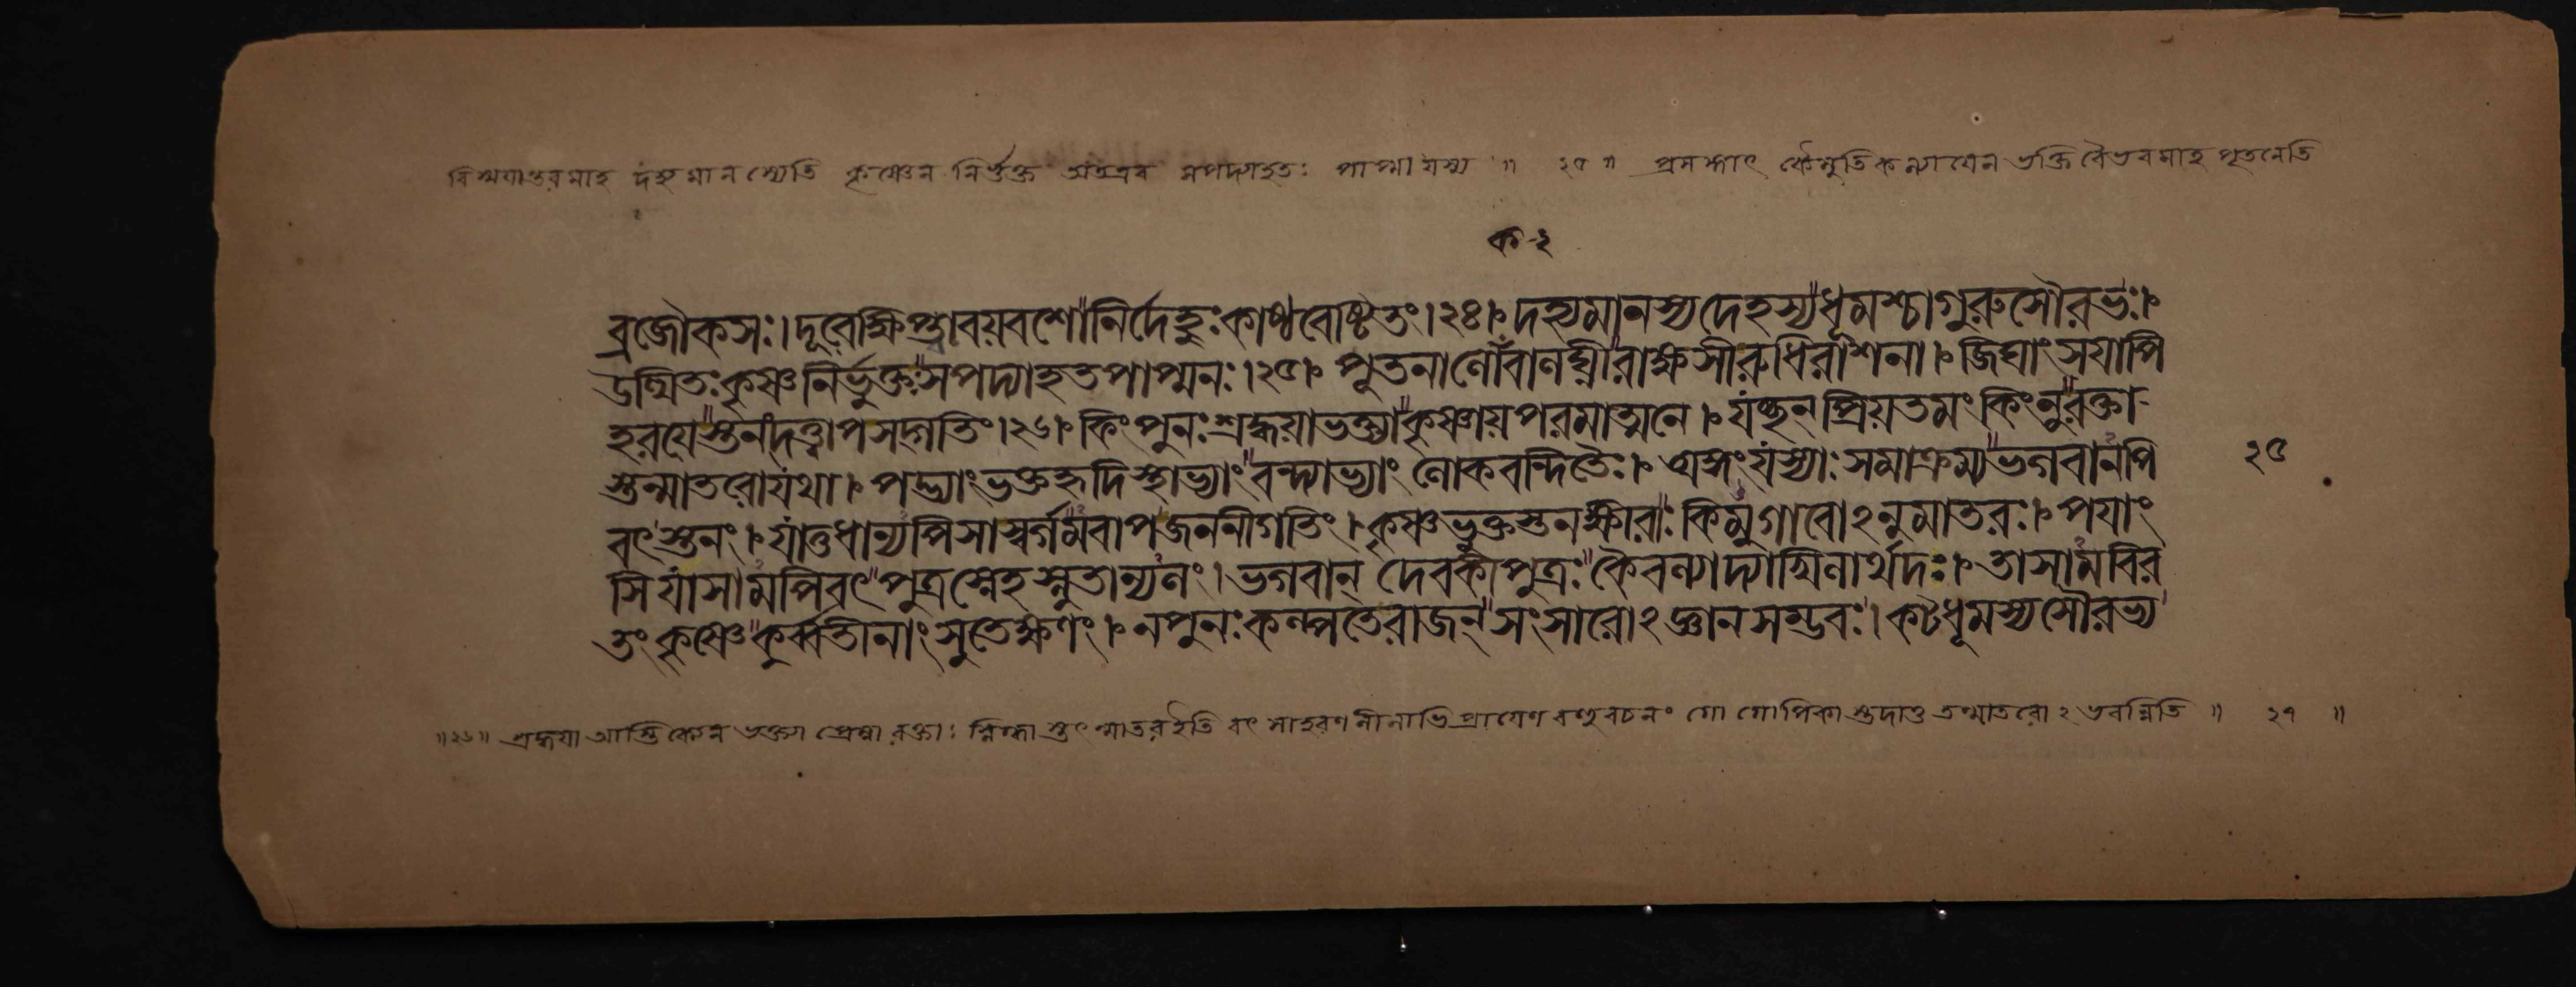 বিস্ময়ান্তরমাহ দহ্যমানস্যেতি কৃষ্ণেন নির্ভুক্ত অতএব সপদ্যাহতঃ পাপ্মা যস্য ॥ ২৫ ॥ প্রসঙ্গাৎ কৈমুতিকন্যায়েন ভক্তিবৈভবমাহ পূতনেতি
ব্রজৌকসঃ। দূরেক্ষিপ্ত্বাবয়বশোনির্দেহুঃকাষ্ঠবেষ্টিতং।২৪। দহ্যমানস্যদেহস্যধূমশ্চাগুরুসৌরভঃ।
উত্থিতঃকৃষ্ণনির্ভুক্তসপদ্যাহতপাপ্মনঃ।২৫। পূতনালোকবালঘ্নীরাক্ষসীরুধিরাশনা। জিঘাংসয়াপি
হরয়েস্তনংদত্ত্বাপসদ্গতিং।২৬। কিংপুনঃশ্রদ্ধয়াভক্ত্যাকৃষ্ণায়পরমাত্মনে। যচ্ছন্প্রিয়তমংকিংনুরক্তা-
স্তন্মাতরোযথা। পদ্ভ্যাংভক্তহৃদিস্থাভ্যাংবন্দ্যাভ্যাং লোকবন্দিতৈঃ। অঙ্গংযস্যাঃসমাক্রম্যভগবানপি
বৎস্তনং। যাতুধান্যপিসাস্বর্গমবাপজননীগতিং। কৃষ্ণভুক্তস্তনক্ষীরাঃকিমুগাবোঽনুমাতরঃ। পয়াং
সিযাসামপিবৎপুত্রস্নেহস্নুতান্যলং। ভগবান্ দেবকীপুত্রঃকৈবল্যাদ্যখিলার্থদঃ। তাসামবির
তংকৃষ্ণেকুর্ব্বতীনাংসুতেক্ষণং। নপুনঃকল্পতেরাজন্সংসারোঽজ্ঞানসম্ভবঃ। কটধূমস্যসৌরভ্য
২৫
॥২৬॥ শ্রদ্ধয়া আস্তিক্যেন ভক্ত্যা প্রেম্না রক্তাঃ স্নিগ্ধা স্তৎ মাতরইতি বৎসাহরণলীলাভিপ্রায়েণ বহুবচনং গো গোপিকাস্তদাতু তন্মাতরোঽভবন্নিতি ॥ ২৭ ॥